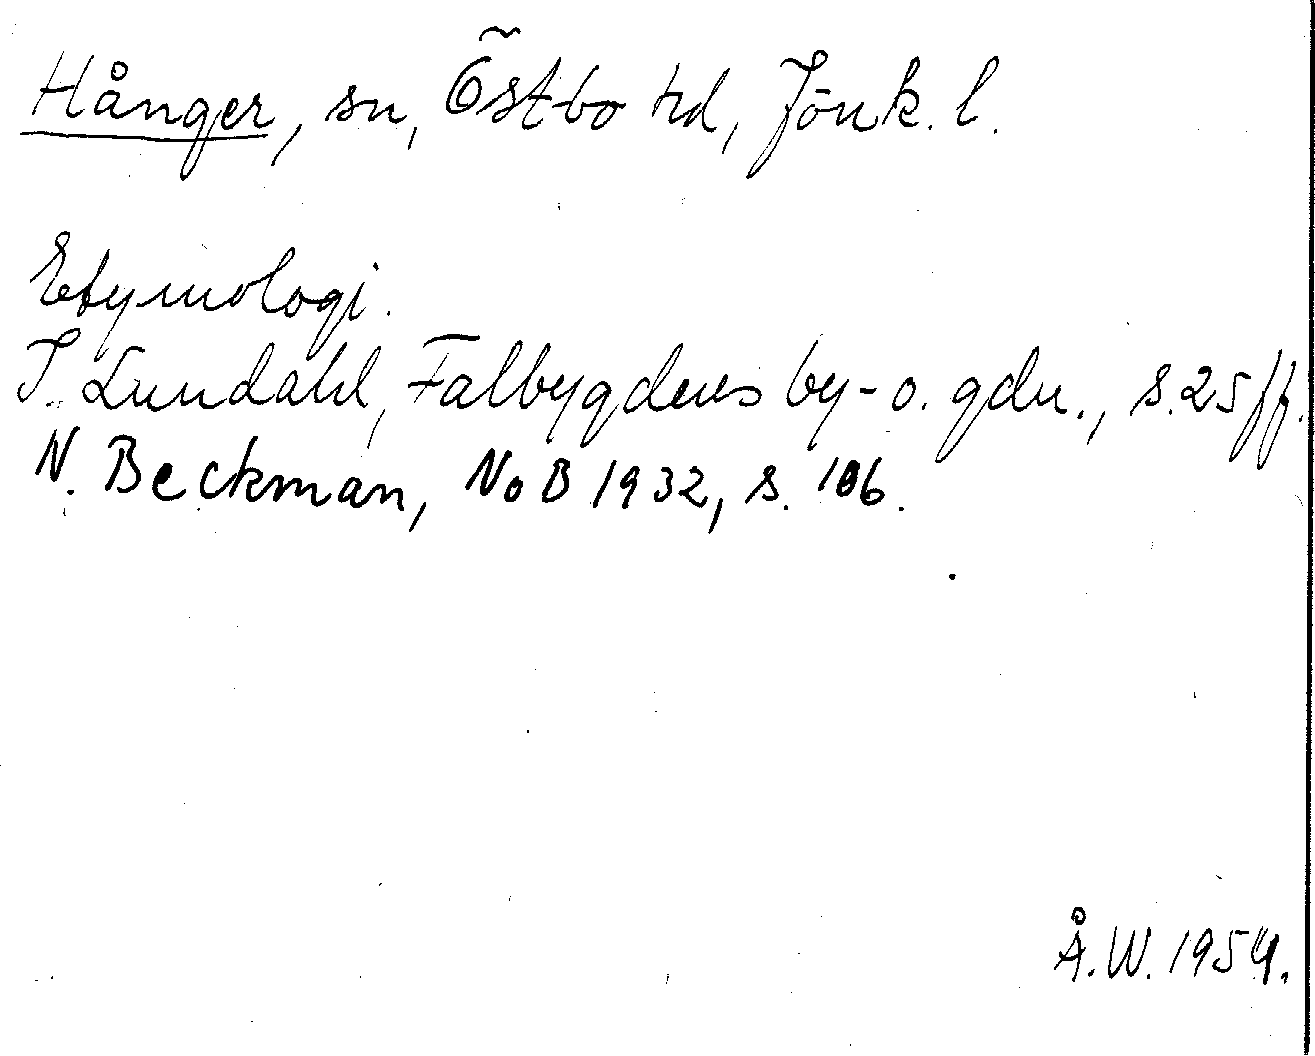 Hånger, sn, Östbo hd, Jönk. l.
Etymologi.
I. Lundahl, Falbygdens by- o. gdn., s. 25 ff.
N. Beckman, NoB 1932, s. 106.
Å.W. 1954.